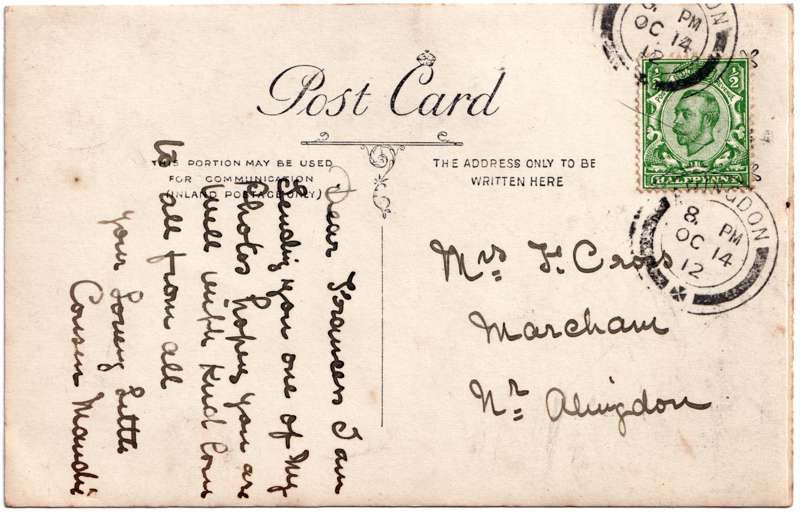 Post Card
THIS PORTION MAY BE USED
FOR COMMUNICATION
(INLAND POSTAGE ONLY)
THE ADDRESS ONLY TO BE
WRITTEN HERE
Dear Frances I am
Sending you one of My
Photos hopeing you are
Well with Kind Love
to all from all
Your Loveing Little
Cousin Maudie
Mrs F. Cross
Marcham
Nr Abingdon
8. PM
OC 14
12
1/2 1/2
HALFPENNY
ABINGDON
8. PM
OC 14
12